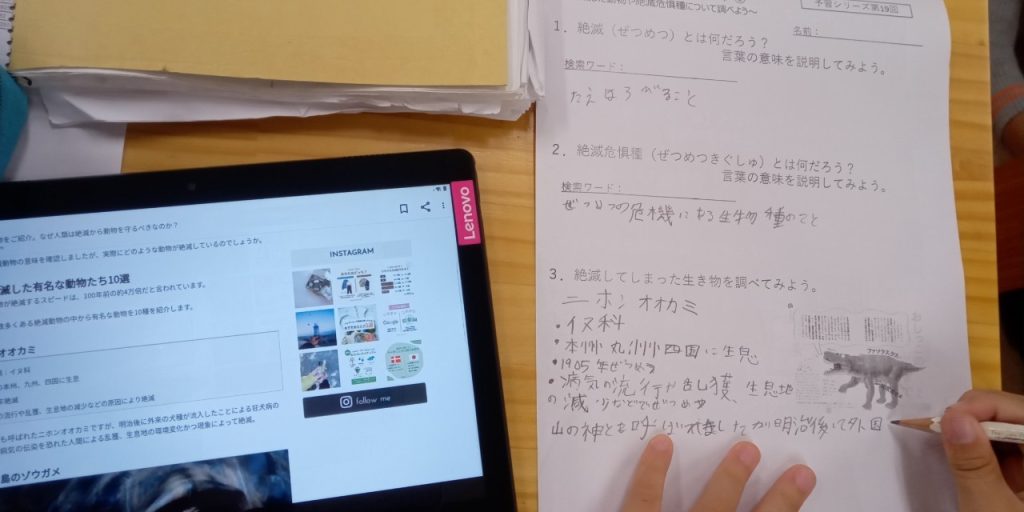 Lenovo
INSTAGRAM
物をご紹介。なぜ人類は絶滅から動物を守るべきなのか？
動物の意味を確認しましたが、実際にどのような動物が絶滅しているのでしょうか。
滅した有名な動物たち10選
が絶滅するスピードは、100年前の約4万倍だと言われています。
多くある絶滅動物の中から有名な動物を10種を紹介します。
オオカミ
：イヌ科
の本州、九州、四国に生息
年絶滅
の流行や乱獲、生息地の減少などの原因により絶滅
も呼ばれたニホンオオカミですが、明治後に外来の犬種が流入したことによる狂犬病の
病気の伝染を恐れた人間による乱獲、生息地の環境変化かつ現象によって絶滅。
島のゾウガメ
follow me
動物や絶滅危惧種について調べよう～
予習シリーズ第19回
名前：
1．絶滅（ぜつめつ）とは何だろう？
言葉の意味を説明してみよう。
検索ワード：
たえほろびること
2．絶滅危惧種（ぜつめつきぐしゅ）とは何だろう？
言葉の意味を説明してみよう。
検索ワード：
ぜつめつの危機にある生物種のこと
3．絶滅してしまった生き物を調べてみよう。
ニホンオオカミ
・イヌ科
・本州 九州 四国に生息
・1905年ぜつめつ
・病気の流行や乱獲、生息地
の減少などでぜつめつ
山の神とも呼ばれましたが明治後に外国